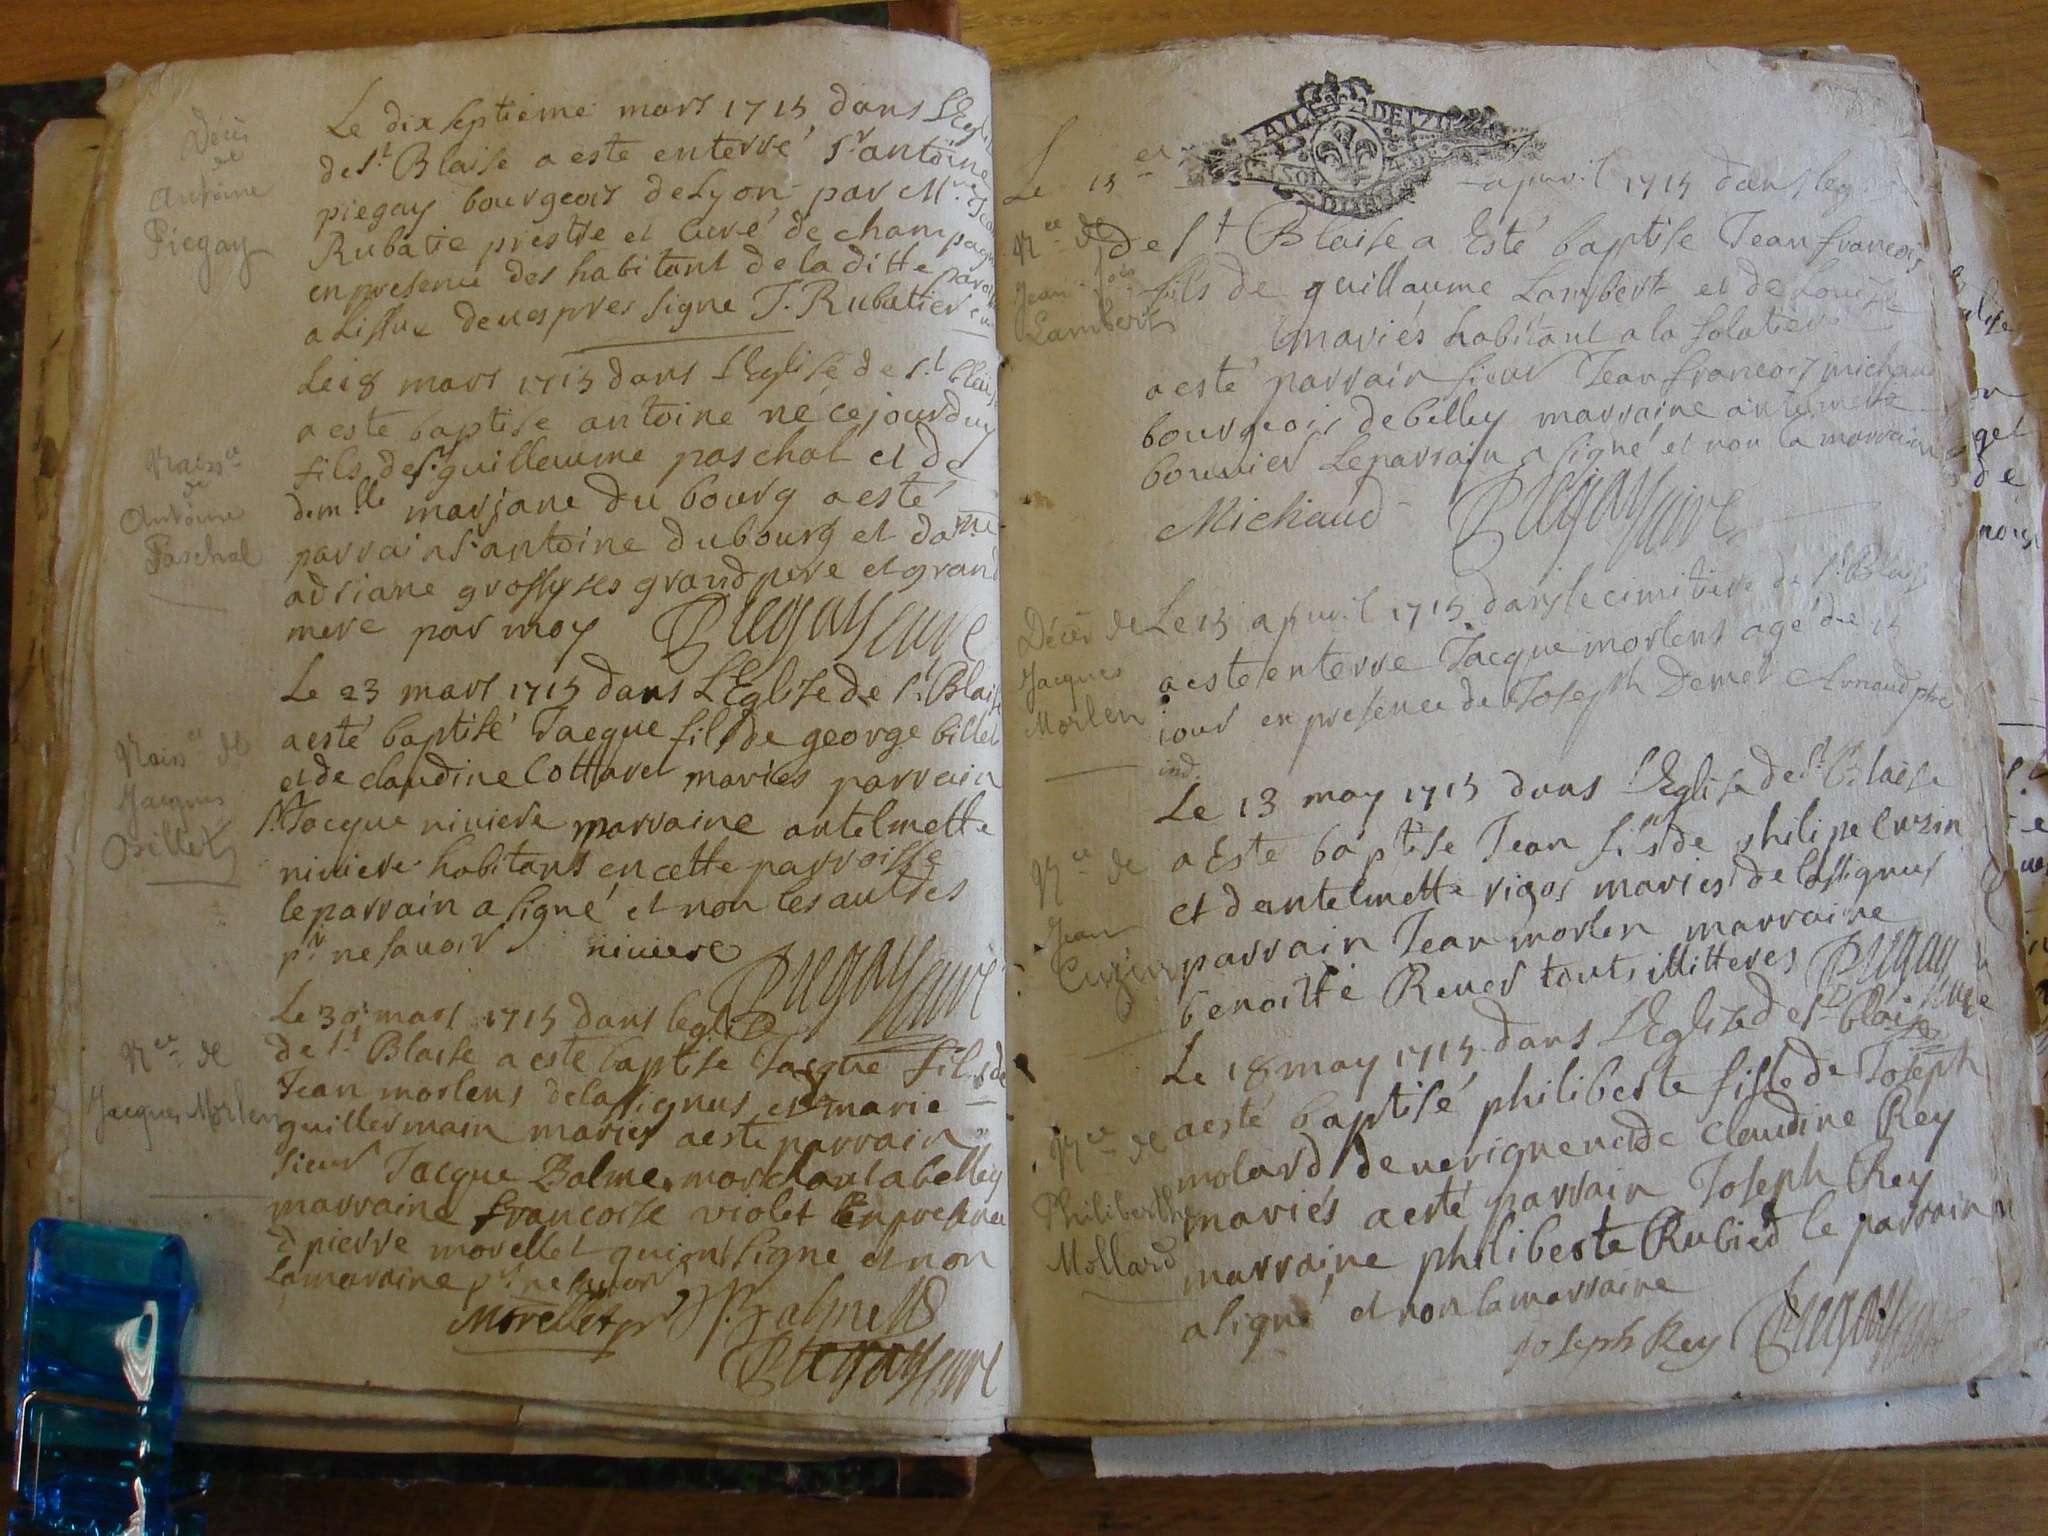 Décès
de
Antoine
Piegay
Le dix septieme mars 1715 dans l'Egli
de St Blaise a este enterré Sr antoine
piegay bourgeois de Lyon par Mre
Rubatie prestre et curé de champagn
en presence des habitant de la ditte paroi
a Lissue de vespres signe J. Rubatier
Le 18 mars 1715 dans l'Eglise de St blais
a este baptise antoine né ce jourduy
fils de Sr guillaume paschal et de
demlle marjane du bourg a esté
parrain Sr antoine dubourg et dame
adriane grossy ses grand pere et grand
mere par moy Piegay curé
Naisce
de
Antoine
Paschal
Le 23 mars 1715 dans L'Eglize de St Blaise
a esté baptisé Jacque fils de george billet
et de claudine Cottaret mariés parrain
Sr Jacque niviere marraine antelmette
niviere habitans en cette parroisse
le parrain a signé et non les autres
pr ne savoir niviere Piegay curé
Naisce de
Jacques
Billet
Le 30 mars 1715 dans leglize
de St Blaise a este baptise Jacque fils de
Jean morlens de lassignus et marie
guillermain mariés a este parrain
sieur Jacque Balme marchant a belley
marraine francoise violet en presence
d pierre morellet qui ont signe et non
la marraine pr ne savoir
Morellet pr J. Balme
Piegay curé
Nce de
Jacques Morlen
Le 15 apuril 1715 dans leg
de St Blaise a Esté baptise Jean francois
fils de guillaume Lambert et de Louise
mariés habitant a la solatiere
a esté parrain sieur Jean francois michaud
bourgeois de belley marraine antelmette
bouvier Le parrain a signé et non la marraine
Michaud Piegay curé
Nce de
Jean fois
Lambert
Le 15 apuril 1715 dans le cimitiere de St Blaise
a este enterre Jacque morlens agé de 15
jour en presence de Joseph Demet Arnaud
Décès de
Jacques
Morlen
Le 13 may 1715 dans l'Eglise de St Blaise
a Este baptise Jean fils de philipe Cuzin
et dantelmette rigot mariés de lassignus
parrain Jean morlen marraine
benoitte Rever touts illitteres Piegay curé
Nce de
Jean
Cuzin
Le 18 may 1715 dans L'Eglize de St blaise
a esté baptisé philiberte fille de Joseph
molard de verignen et de claudine Rey
mariés a esté parrain Joseph Rey
marraine philiberte Rubied le parrain
a signé et non la marraine
Joseph Rey Piegay curé
Nce de
Philiberthe
Mollard